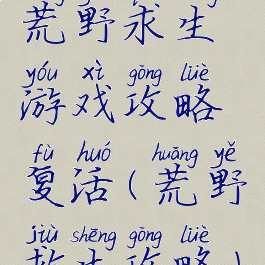 荒野求生
yóu xì gōng lüè
游戏攻略
fù huó huāng yě
复活(荒野
jiù shēng gōng lüè